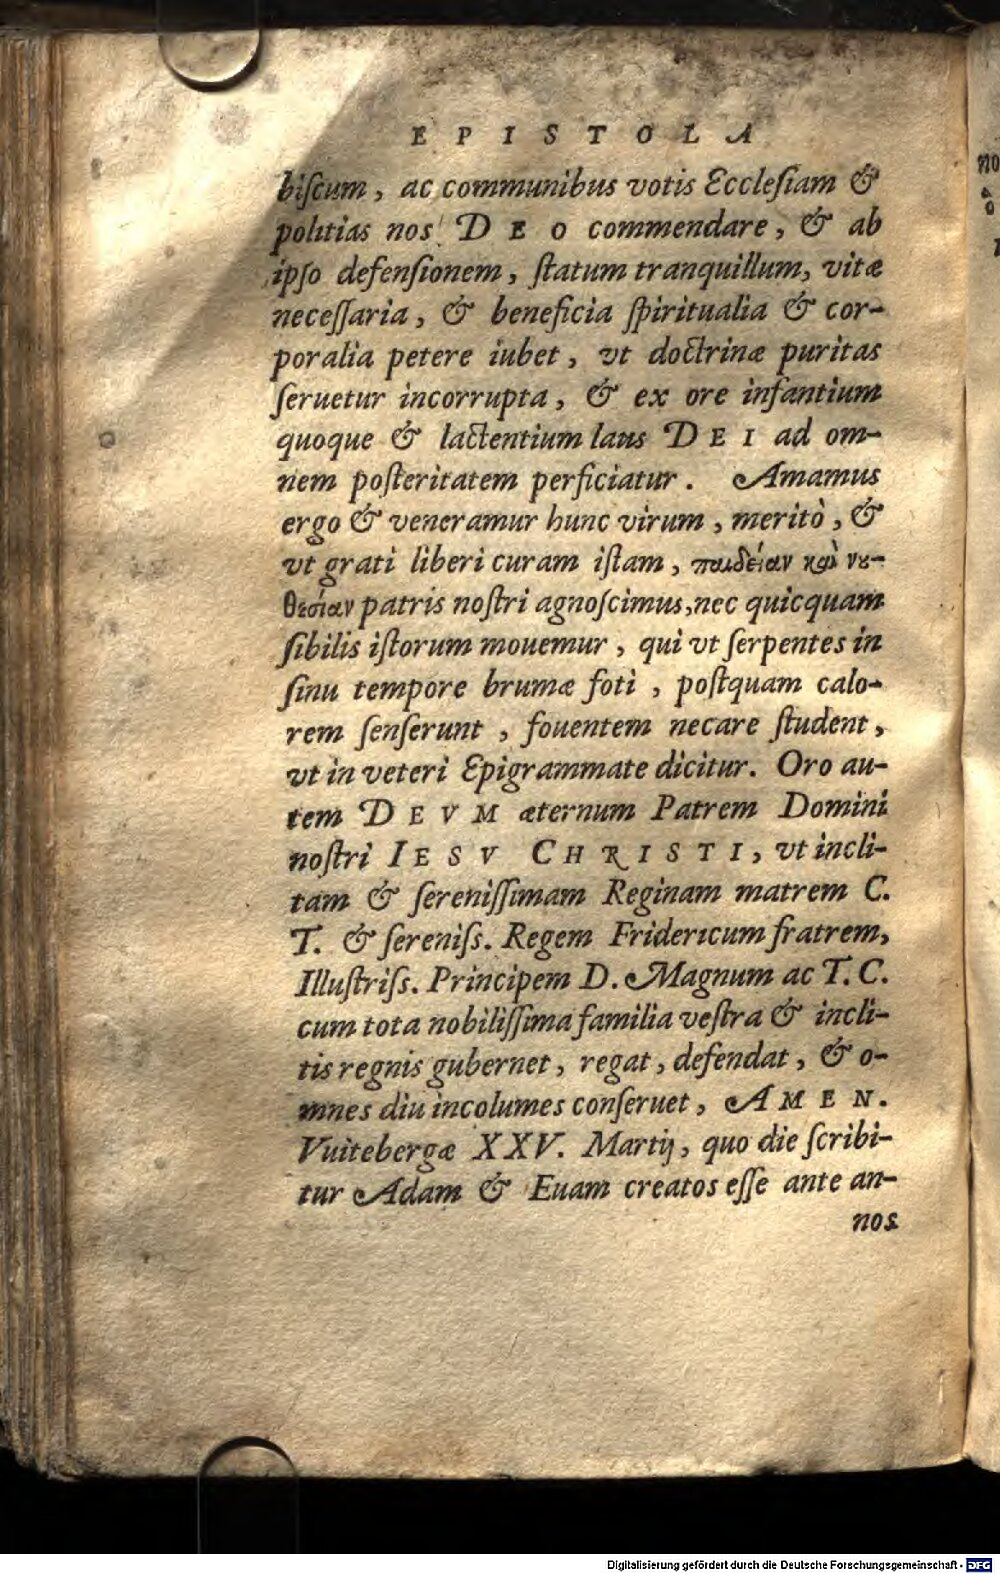 EPISTOLA
biſcum, ac communibus votis Eccleſiam &
politias nos DEO commendare, & ab
ipſo defenſionem, ſtatum tranquillum, vitæ
neceſſaria, & beneficia ſpiritualia & cor-
poralia petere iubet, vt doctrinæ puritas
ſeruetur incorrupta, & ex ore infantium
quoque & lactentium laus DEI ad om-
nem poſteritatem perficiatur. Amamus
ergo & veneramur hunc virum, meritò, &
vt grati liberi curam iſtam, παιδείαν καὶ νου-
θεσίαν patris noſtri agnoſcimus, nec quicquam
ſibilis iſtorum mouemur, qui vt ſerpentes in
ſinu tempore brumæ foti, poſtquam calo-
rem ſenſerunt, fouentem necare ſtudent,
vt in veteri Epigrammate dicitur. Oro au-
tem DEVM æternum Patrem Domini
noſtri IESV CHRISTI, vt incli-
tam & ſereniſſimam Reginam matrem C.
T. & ſereniſs. Regem Fridericum fratrem,
Illuſtriſs. Principem D. Magnum ac T. C.
cum tota nobiliſſima familia veſtra & incli-
tis regnis gubernet, regat, defendat, & o-
mnes diu incolumes conſeruet, AMEN.
Vuitebergæ XXV. Martij, quo die ſcribi-
tur Adam & Euam creatos eſſe ante an-
nos
no
Digitalisierung gefördert durch die Deutsche Forschungsgemeinschaft - DFG